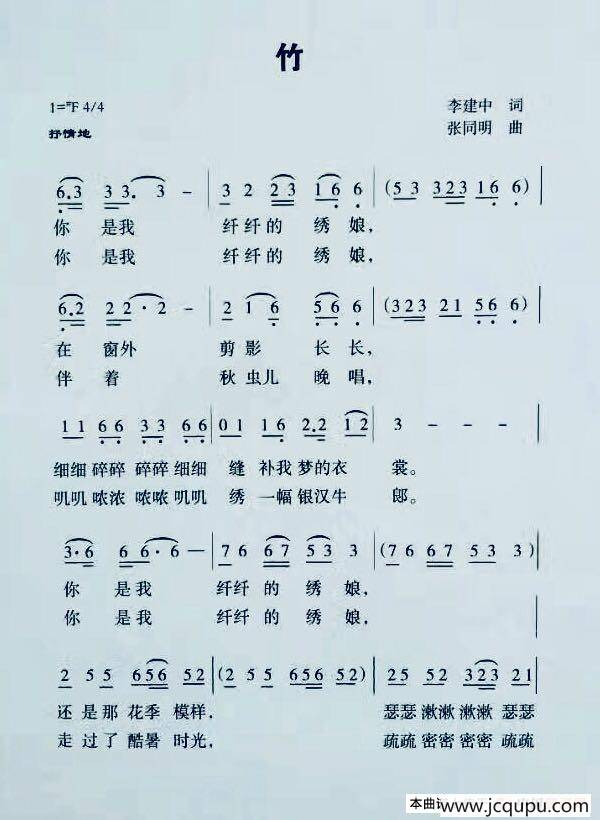 竹
1=#F 4/4
李建中 词
抒情地
张同明 曲
6.3 3 3. 3 - | 3 2 2 3 1 6 6 | (5 3 3 2 3 1 6 6) |
你 是我 纤纤的 绣 娘,
你 是我 纤纤的 绣 娘,
6.2 2 2·2 - | 2 1 6 5 6 6 | (3 2 3 2 1 5 6 6) |
在 窗外 剪影 长 长,
伴 着 秋虫儿 晚 唱,
1 1 6 6 3 3 6 6 | 0 1 1 6 2.2 1 2 | 3 - - - |
细细 碎碎 碎碎 细细 缝 补我 梦的衣 裳。
叽叽 哝浓 哝哝 叽叽 绣 一幅 银汉牛 郎。
3·6 6 6·6 — | 7 6 6 7 5 3 3 | (7 6 6 7 5 3 3) |
你 是我 纤纤 的 绣 娘,
你 是我 纤纤 的 绣 娘,
2 5 5 6 5 6 5 2 | (2 5 5 6 5 6 5 2) | 2 5 5 2 3 2 3 2 1 |
还 是那 花季 模样, 瑟瑟 漱漱 漱漱 瑟瑟
走 过了 酷暑 时光, 疏疏 密密 密密 疏疏
本曲
www.jcqupu.com